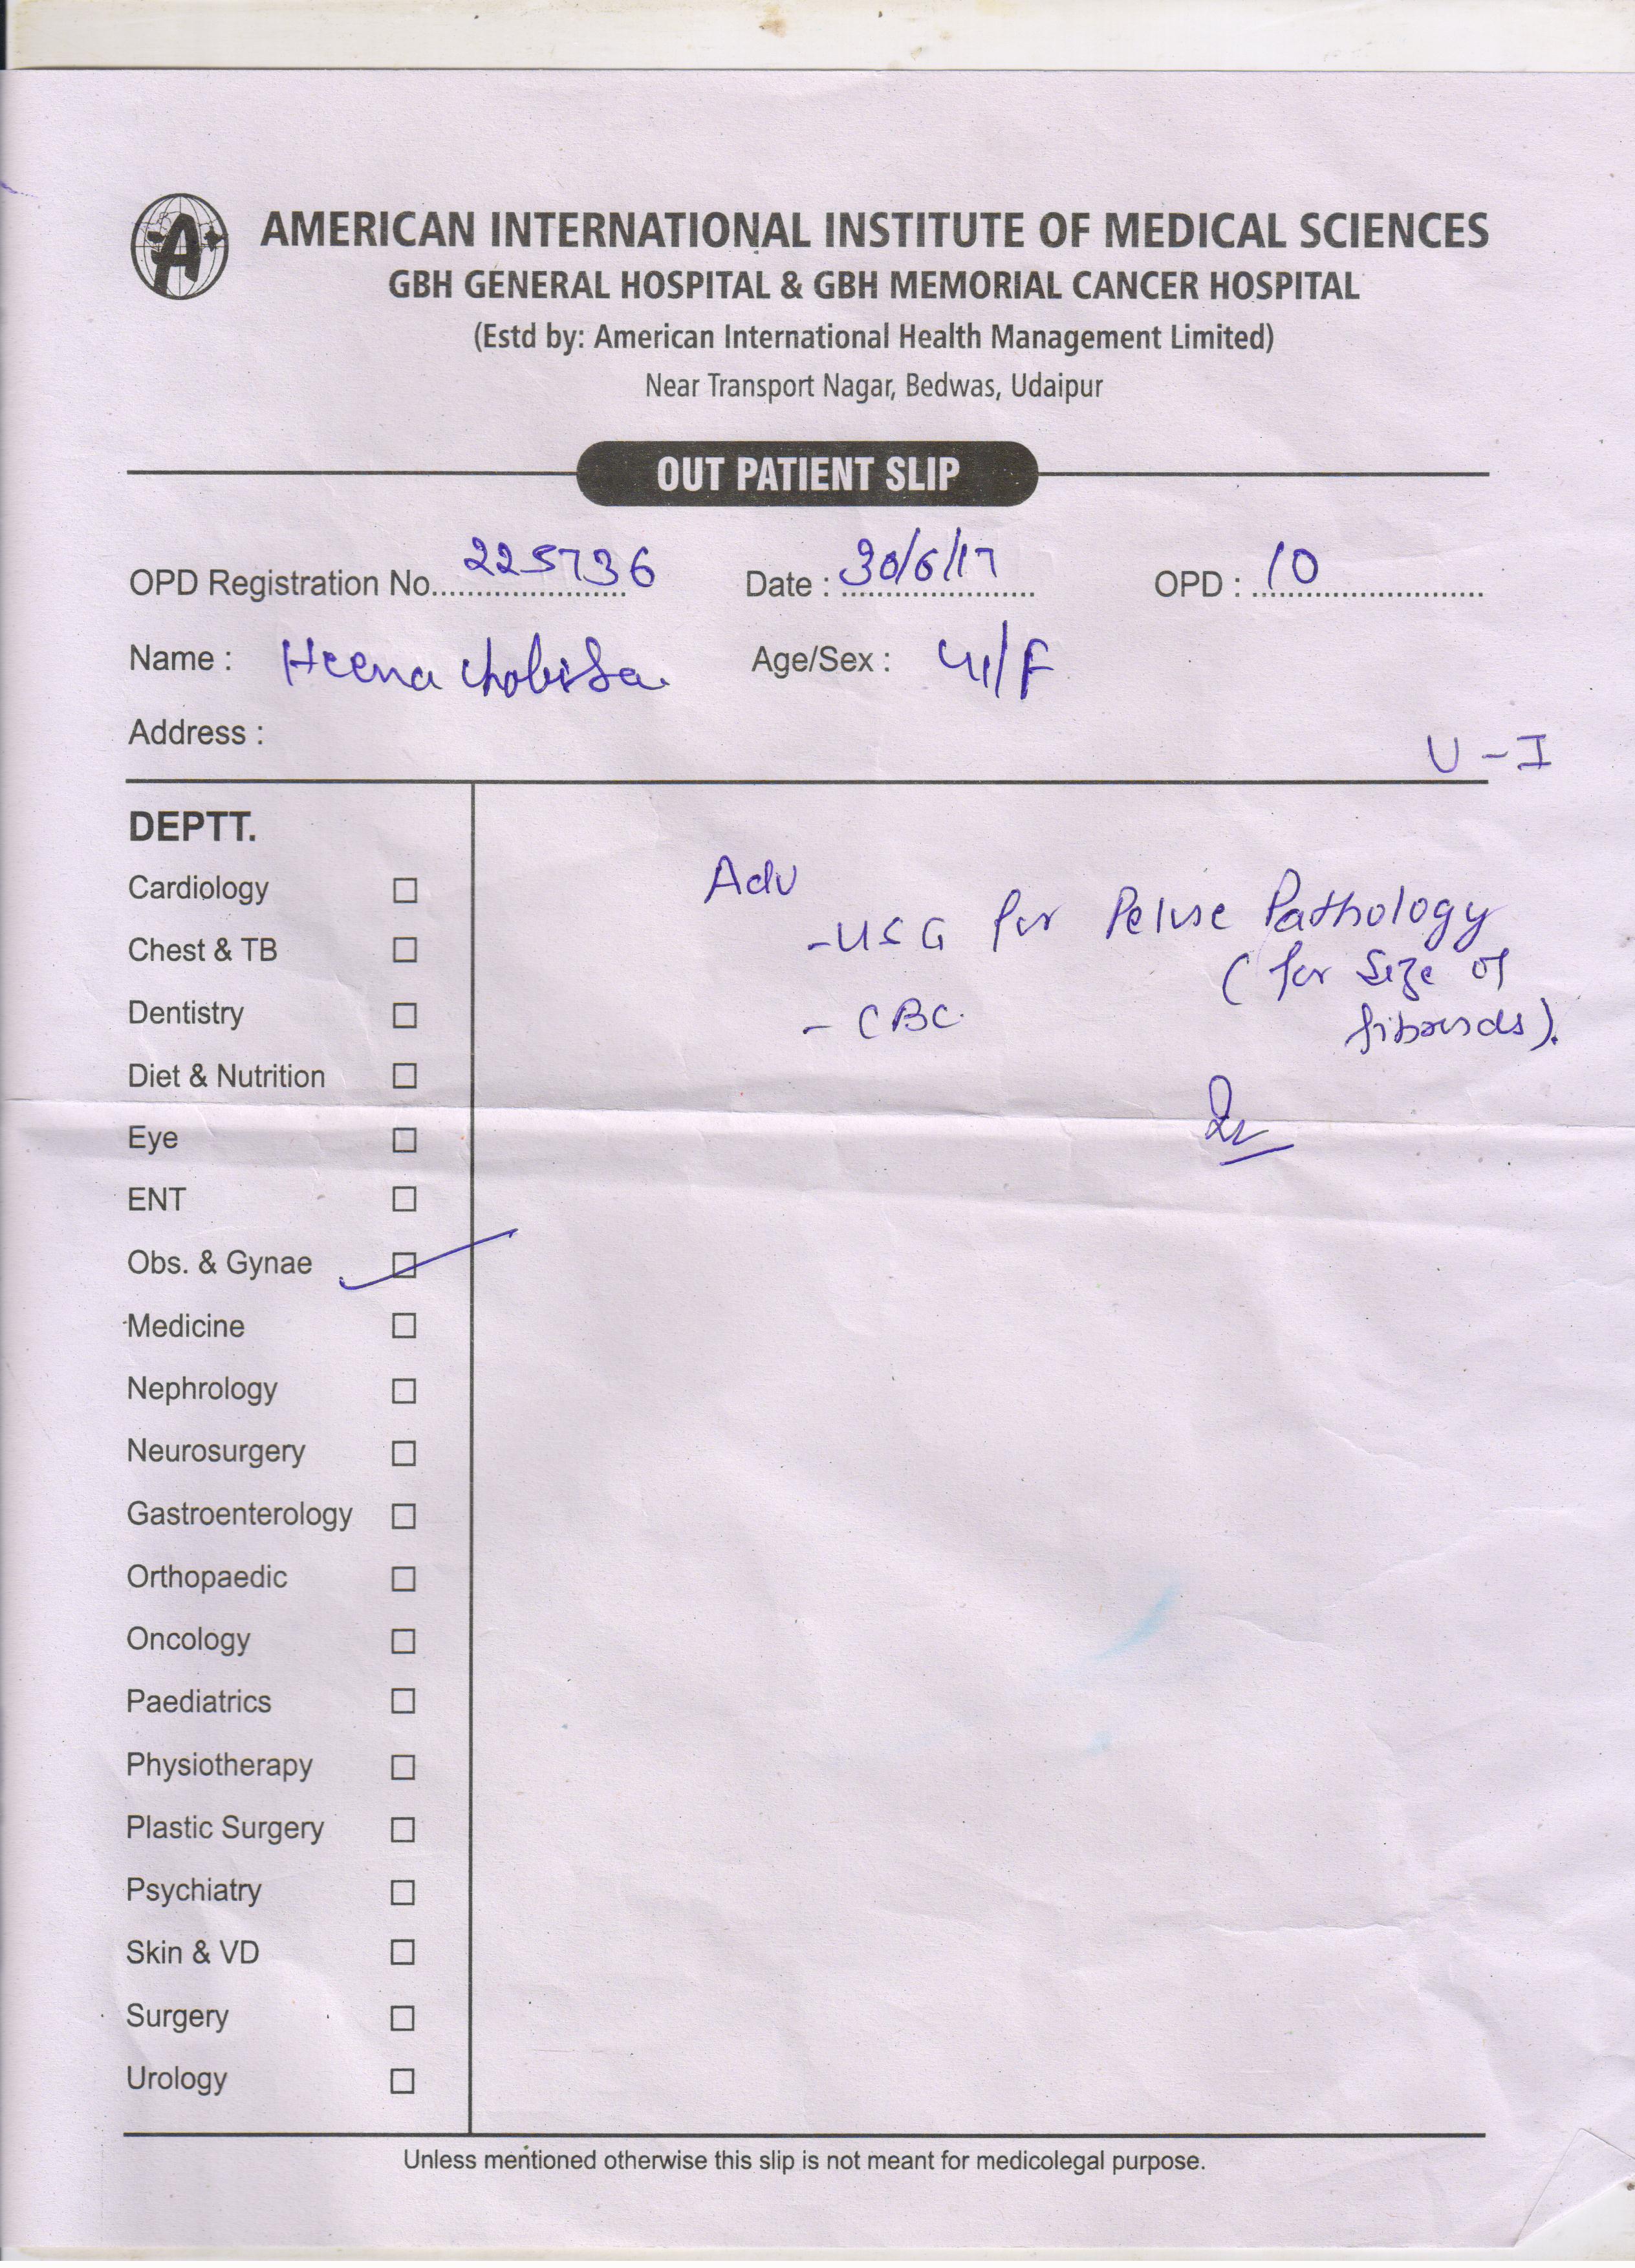 AMERICAN INTERNATIONAL INSTITUTE OF MEDICAL SCIENCES
GBH GENERAL HOSPITAL & GBH MEMORIAL CANCER HOSPITAL
(Estd by: American International Health Management Limited)
Near Transport Nagar, Bedwas, Udaipur
OUT PATIENT SLIP
OPD Registration No. 225736 Date : 30/6/17 OPD : 10
Name : Heena Chobisa Age/Sex : 41/F
Address :
U - I
DEPTT.
Cardiology
Chest & TB
Dentistry
Diet & Nutrition
Eye
ENT
Obs. & Gynae
Medicine
Nephrology
Neurosurgery
Gastroenterology
Orthopaedic
Oncology
Paediatrics
Physiotherapy
Plastic Surgery
Psychiatry
Skin & VD
Surgery
Urology
Adv
- USG for Pelvic Pathology
(for size of
fibroids).
- CBC
Unless mentioned otherwise this slip is not meant for medicolegal purpose.